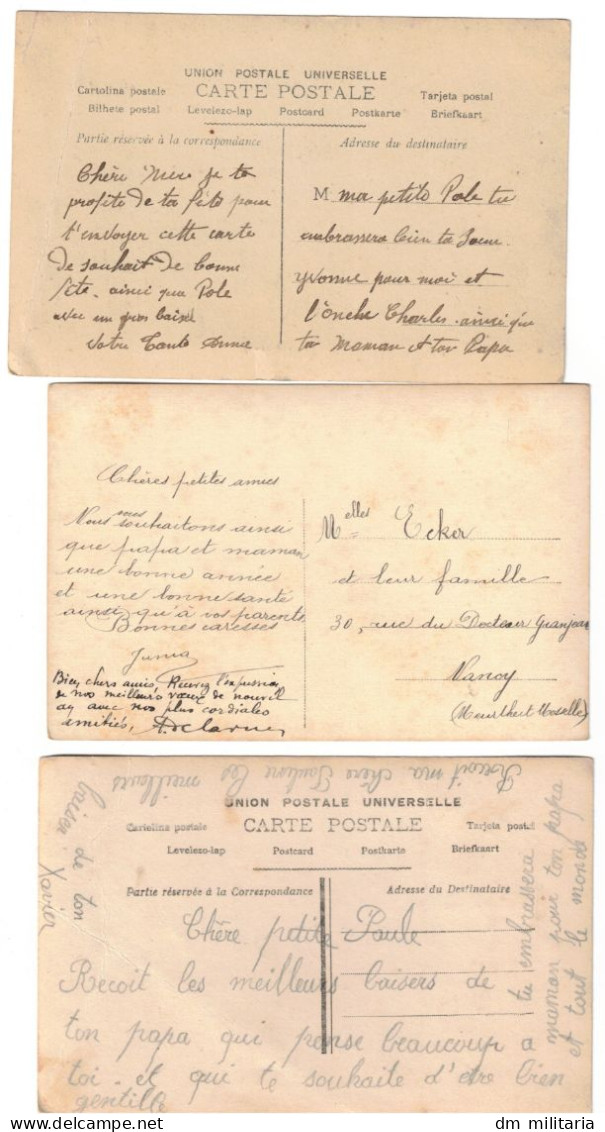 UNION POSTALE UNIVERSELLE
CARTE POSTALE
Cartolina postale
Tarjeta postal
Bilhete postal Levelezo-lap Postcard Postkarte Briefkaart
Partie réservée à la correspondance
Adresse du destinataire
Chère je te
profite de ta fête pour
t'envoyer cette carte
de souhait de bonne
fête. ainsi que Pole
avec un gros baisé
votre Tante Anna
M ma petite Pole tu
aubrassera bien ta Soeur
yvonne pour moi et
l'oncle Charles. ainsi que
ta Maman et ton Papa
Chères petites amies
Nous vous souhaitons ainsi
que papa et maman
une bonne année
et une bonne santé
ainsi qu'à vos parents
Bonnes caresses
Bien chers amis, Recevez l'expression
de nos meilleurs vœux de nouvel
an avec nos plus cordiales
amitiés,
Melles Ecker
et leur famille
30, rue du Docteur Granjean
Nancy
(Meurthe et Moselle)
Recoit ma chère les meilleurs
baiser de ton
Xavier
UNION POSTALE UNIVERSELLE
CARTE POSTALE
Cartolina postale
Tarjeta postal
Levelezo-lap Postcard Postkarte Briefkaart
Partie réservée à la Correspondance
Adresse du Destinataire
Chère petite Paule
Recoit les meilleurs baisers de
ton papa qui pense beaucoup a
toi. et qui te souhaite d'etre bien
gentille
tu embrassera
maman pour ton papa
et tout le monde
dm militaria